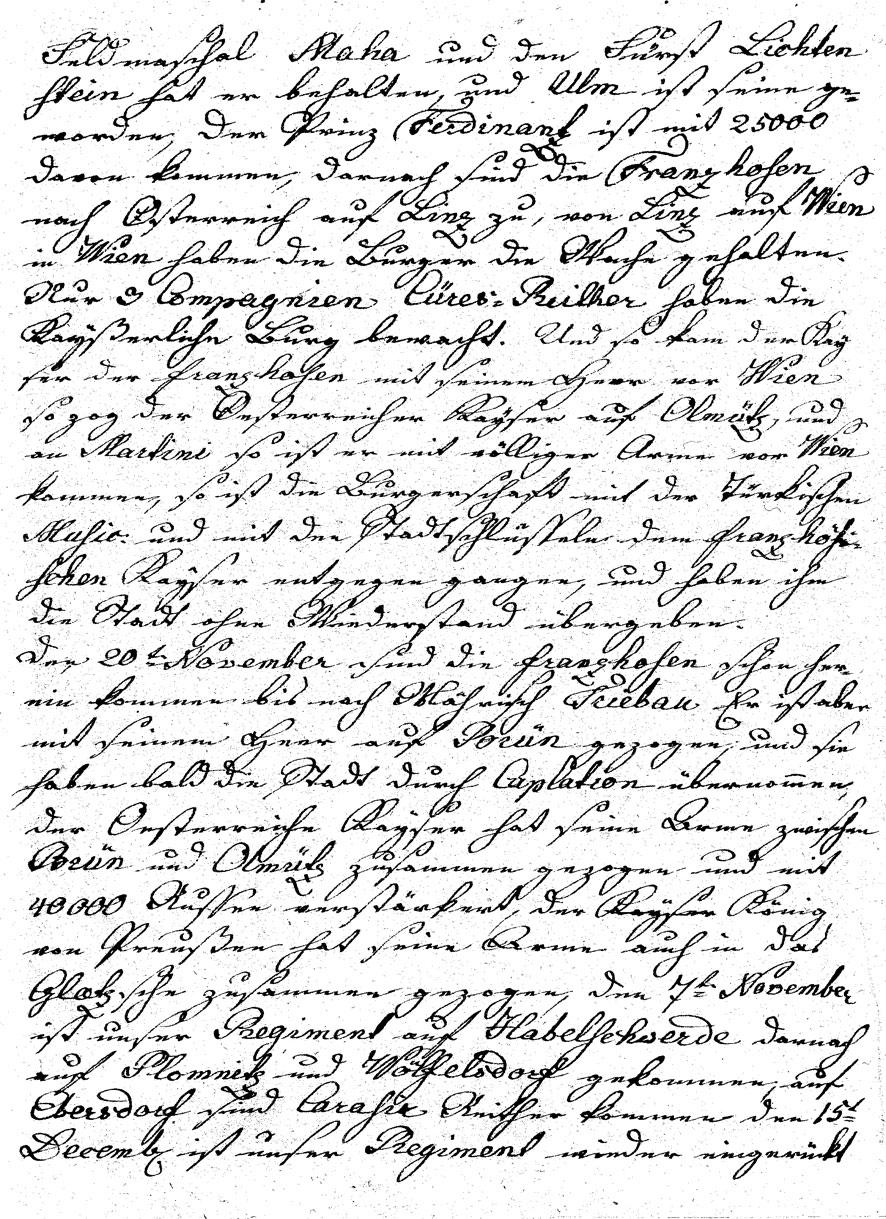 Feldmaschal Maka und den Fürst Lichten
stein hat er behalten, und Ulm ist seine ge=
worden, Der Prinz Ferdinant ist mit 25000
davon kommen, darnach sind die Franzhosen
nach Österreich auf Linz zu, von Linz auf Wien
in Wien haben die Burger die Wache gehalten.
Nur 3 Compagnien Cüres=Reither haben die
Kayßerliche Burg bewacht. Und so kam der Kay
ser der franzhosen mit seinem Heer vor Wien
so zog der Oesterreicher Kayser auf Olmütz, und
an Martini so ist er mit völliger Arme vor Wien
kommen, so ist die Burgerschaft mit der Türkischen
Music: und mit den Stadtschlüsseln dem franzhösi=
schen Kayser entgegen gangen, und haben ihm
die Stadt ohne Wiederstand übergeben.
Den 20t November sind die franzhosen schon her=
ein kommen bis nach Mährisch Triebau Er ist aber
mit seinem Heer auf Brün gezogen, und sie
haben bald die Stadt durch Caplation übernommen,
der Oesterreiche Kayser hat seine Arme zwischen
Brün und Olmütz zusammen gezogen und mit
40000 Russen verstärkert, der Kayser König
von Preußen hat seine Arme auch in das
Glatzsche zusammen gezogen, den 7t November
ist unser Regiment auf Habelschwerde darnach
auf Plomnitz und Wölfelsdorf gekommen, auf
Ebersdorf sind Carasir Reither kommen den 15t
Decemb ist unser Regiment wieder eingerückt